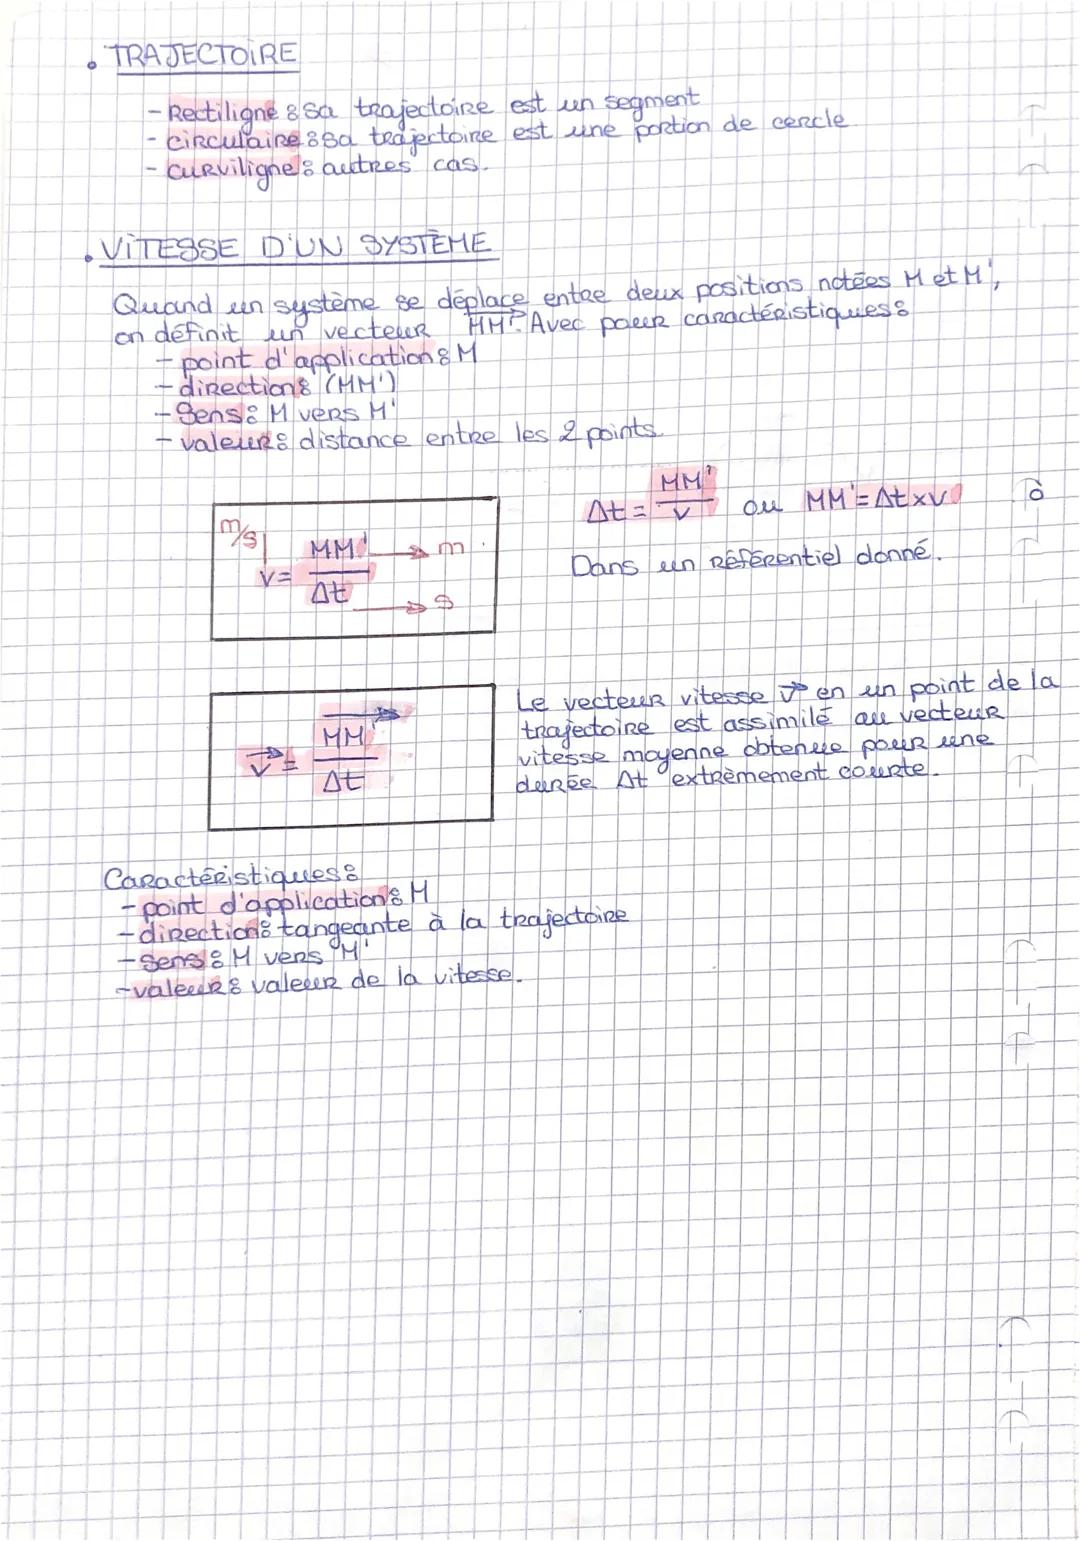 . TRAJECTOIRE
- Rectiligne : sa trajectoire est un segment
- circulaire : sa trajectoire est une portion de cercle
- curviligne : autres cas.
. VITESSE D'UN SYSTÈME
Quand un système se déplace entre deux positions notées M et M',
on définit un vecteur MM'. Avec pour caractéristiques :
- point d'application : M
- direction : (MM')
- Sens : M vers M'
- valeur : distance entre les 2 points.
Δt = MM'/v ou MM' = Δt x v
m/s
v = MM'/Δt → m → s
Dans un référentiel donné.
Le vecteur vitesse v⃗ en un point de la
trajectoire est assimilé au vecteur
vitesse moyenne obtenue pour une
durée Δt extrèmement courte.
v⃗ = MM'⃗/Δt
Caractéristiques :
- point d'application : M
- direction : tangeante à la trajectoire
- Sens : M vers M'
- valeur : valeur de la vitesse.